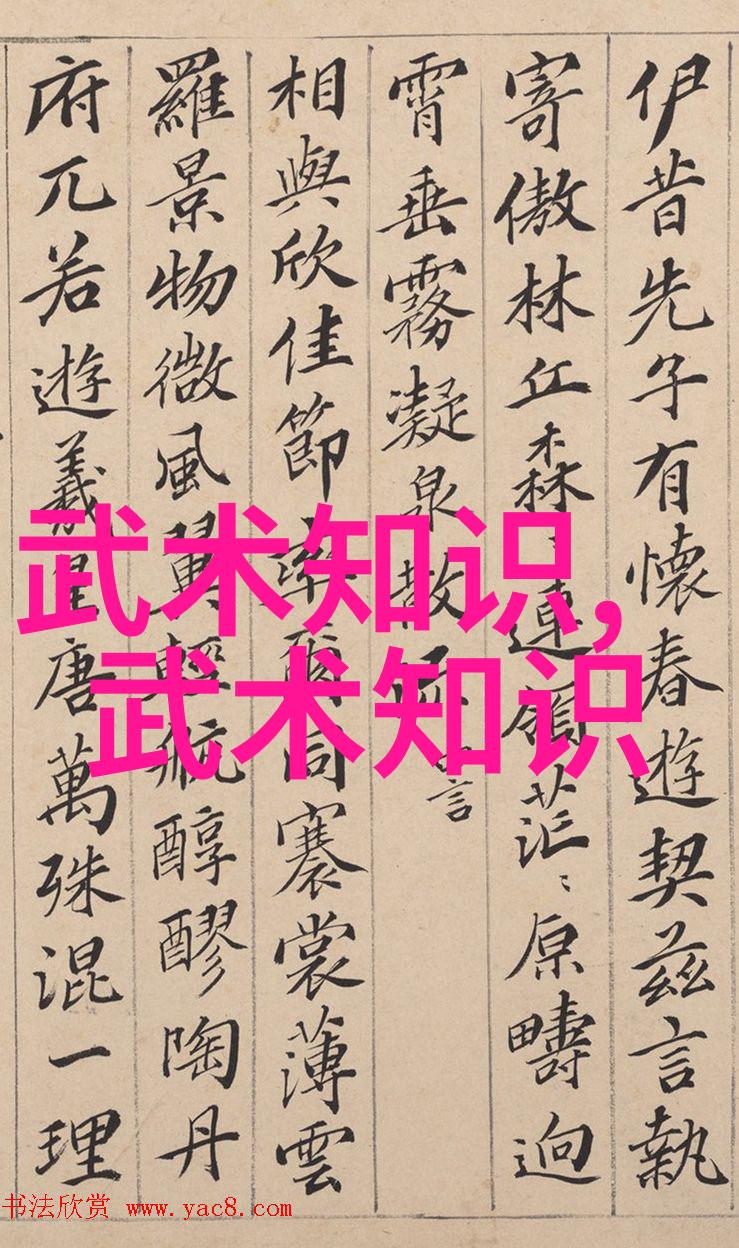 伊昔先子有懷春遊契茲言執
寄傲林丘森〻連嶺茫〻原疇逈
霄垂霧凝泉散流言
相與欣佳節率爾同褰裳薄雲
羅景物微風翼輕航醇醪陶丹
府兀若遊羲皇唐萬殊混一理
武术知识,
武术知识
书法欣赏 www.yac8.com